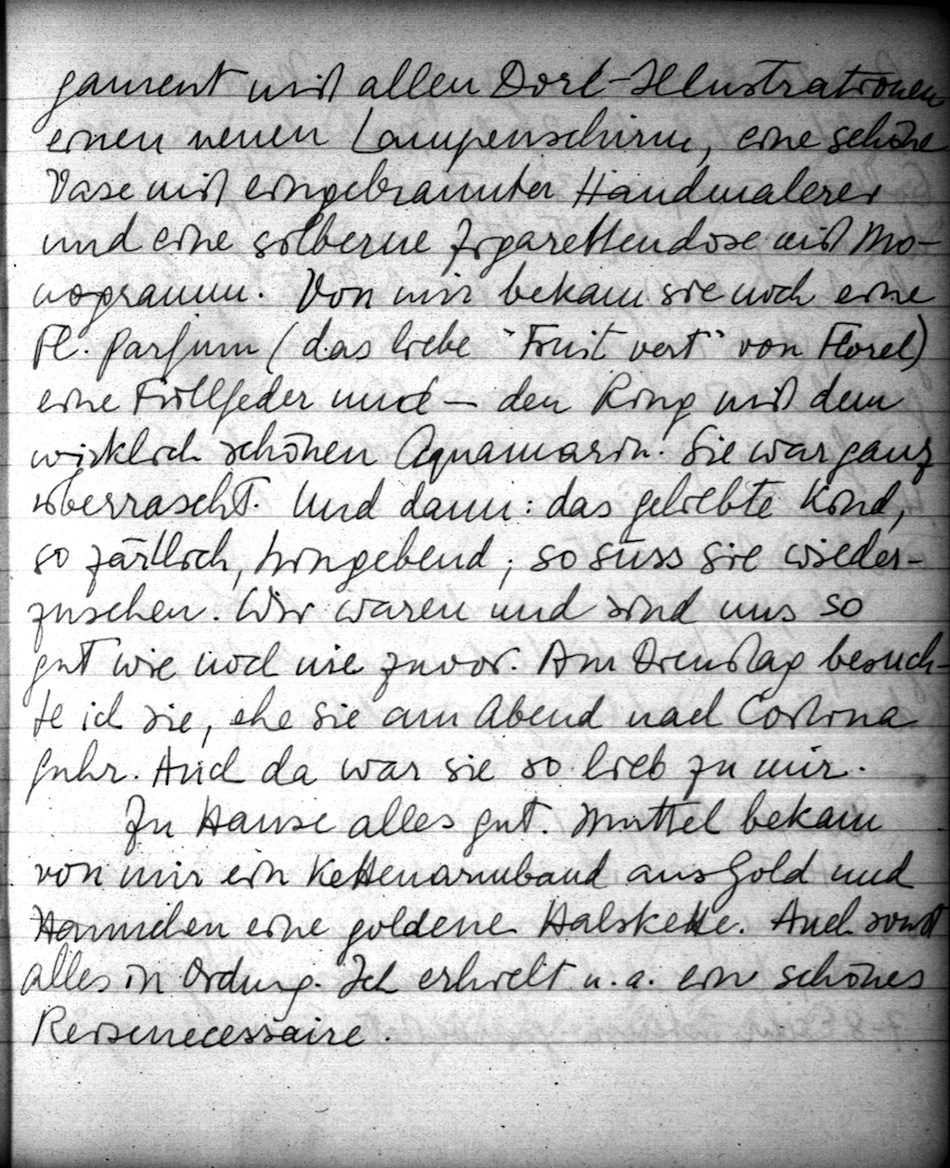 gament mit allen Doré-Illustrationen
einen neuen Lampenschirm, eine schöne
Vase mit eingebrannter Handmalerei
und eine silberne Zigarettendose mit Mo-
nogramm. Von mir bekam sie noch eine
Fl. Parfum (das liebe "Fruit vert" von Florel)
eine Füllfeder und – den Ring mit dem
wirklich schönen Aquamarin. Sie war ganz
überrascht. Und dann: das geliebte Kind,
so zärtlich, hingebend; so süss sie wieder-
zusehen. Wir waren und sind uns so
gut wie noch nie zuvor. Am Dienstag besuch-
te ich sie, ehe sie am Abend nach Cortina
fuhr. Auch da war sie so lieb zu mir.
Zu Hause alles gut. Muttel bekam
von mir ein Kettenarmband aus Gold und
Hannichen eine goldene Halskette. Auch sonst
alles in Ordung. Ich erhielt u. a. ein schönes
Reisenecessaire.